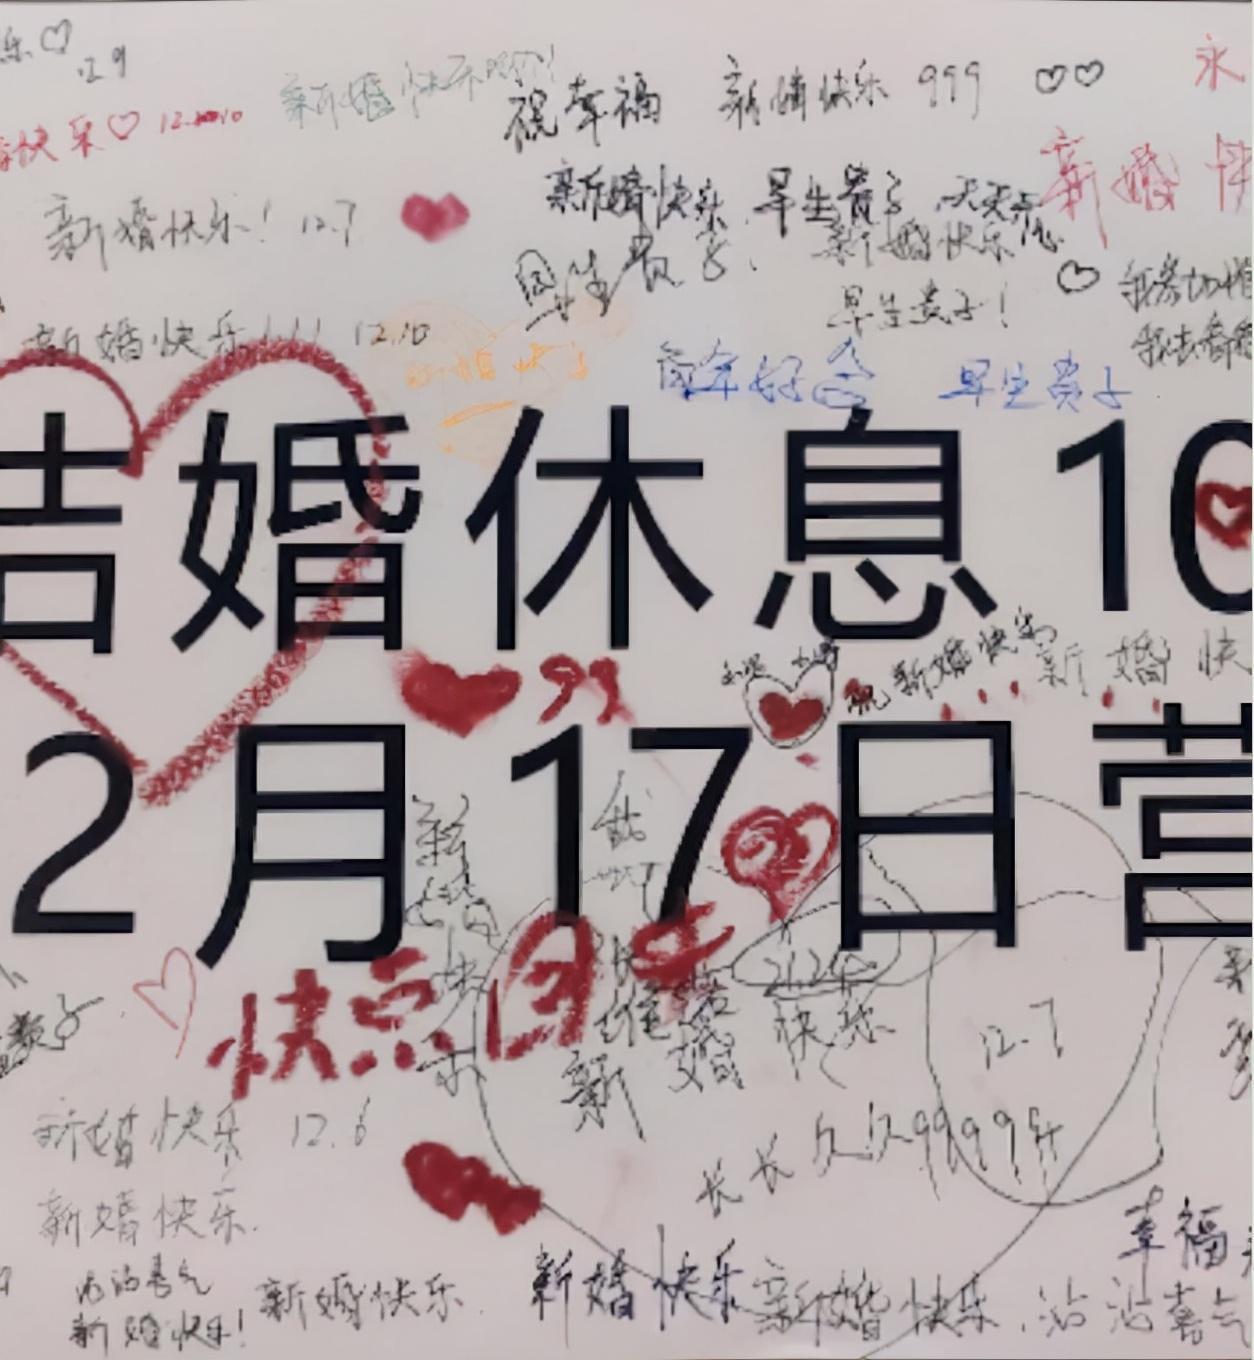 乐♡ 12.9
新婚快乐哟!
祝幸福 新婚快乐 999 ♡♡
永
婚快乐♡ 12.10
新婚快
新婚快乐! 12.7
新婚快乐 早生贵子 天天
早生贵子.
新婚快乐
早生贵子!
新婚快乐!!!! 12.10
新婚快乐
百年好合 早生贵子
结婚休息10
祝新婚快乐
新婚快
99
2月17日营
新婚快乐
快点回来
新婚快乐
12.7
新婚快乐 12.6
长长久久9999年
新婚快乐.
幸福
沾沾喜气
新婚快乐!
新婚快乐.
新婚快乐
新婚快乐.沾沾喜气